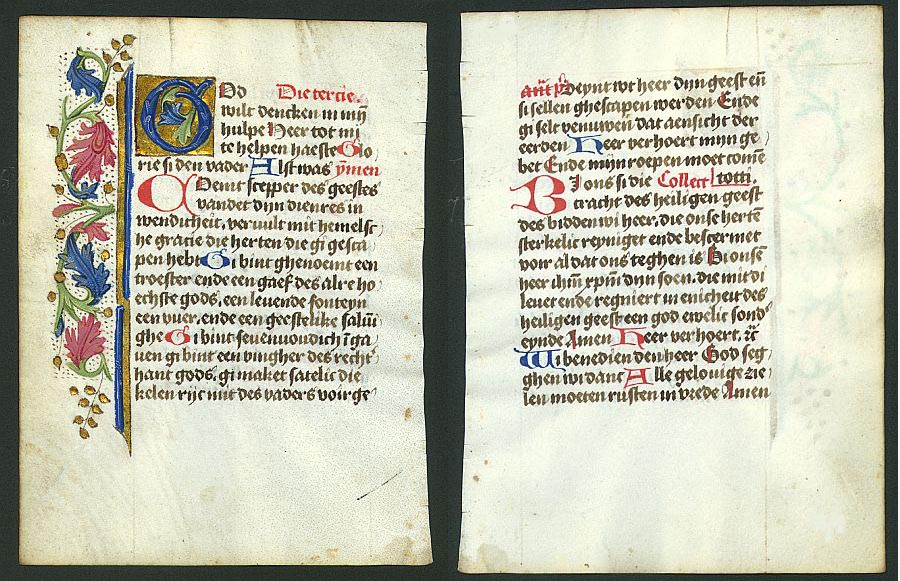 God Die tercie.
wilt dencken in mijn
hulpe Heer tot mi
te helpen haeste Glo
rie si den vader Alst was ymen
Coemt scepper des geestes
vandet dijn dienres in
wendicheit, vervult mit hemelsc
he gracie die herten die gi gesca
pen hebt Gi bint ghenoemt een
troester ende een gaef des alre ho
echste gods, een levende fonteyn
een vuer, ende een geestelike salvi
ghe Gi bint sevenvoudich in ga
ven gi bint een vingher des recht
hant gods, gi maket satelic die
kelen rijc mit des vaders voirge
deynt wt heer dijn geest eñ
si sellen ghescapen werden Ende
gi selt venuwen dat aensicht der
eerden Heer verhoert mijn ge
bet Ende mijn roepen moet tot di come
Bi ons si die Collect totti
tracht des heiligen geest
des bidden wi heer, die onse herte
sterkelic reyniget ende bescermet
voir al dat ons teghen is Bi onsen
heer ihm xpm dijn soen, die mit di
levet ende regniert in enicheit des
heiligen geest een god ewelic sond
eynde Amen Heer verhoert, ꝛc̃
Wi benedien den heer God seg
ghen wi danc Alle gelovige zie
len moeten rusten in vrede Amen